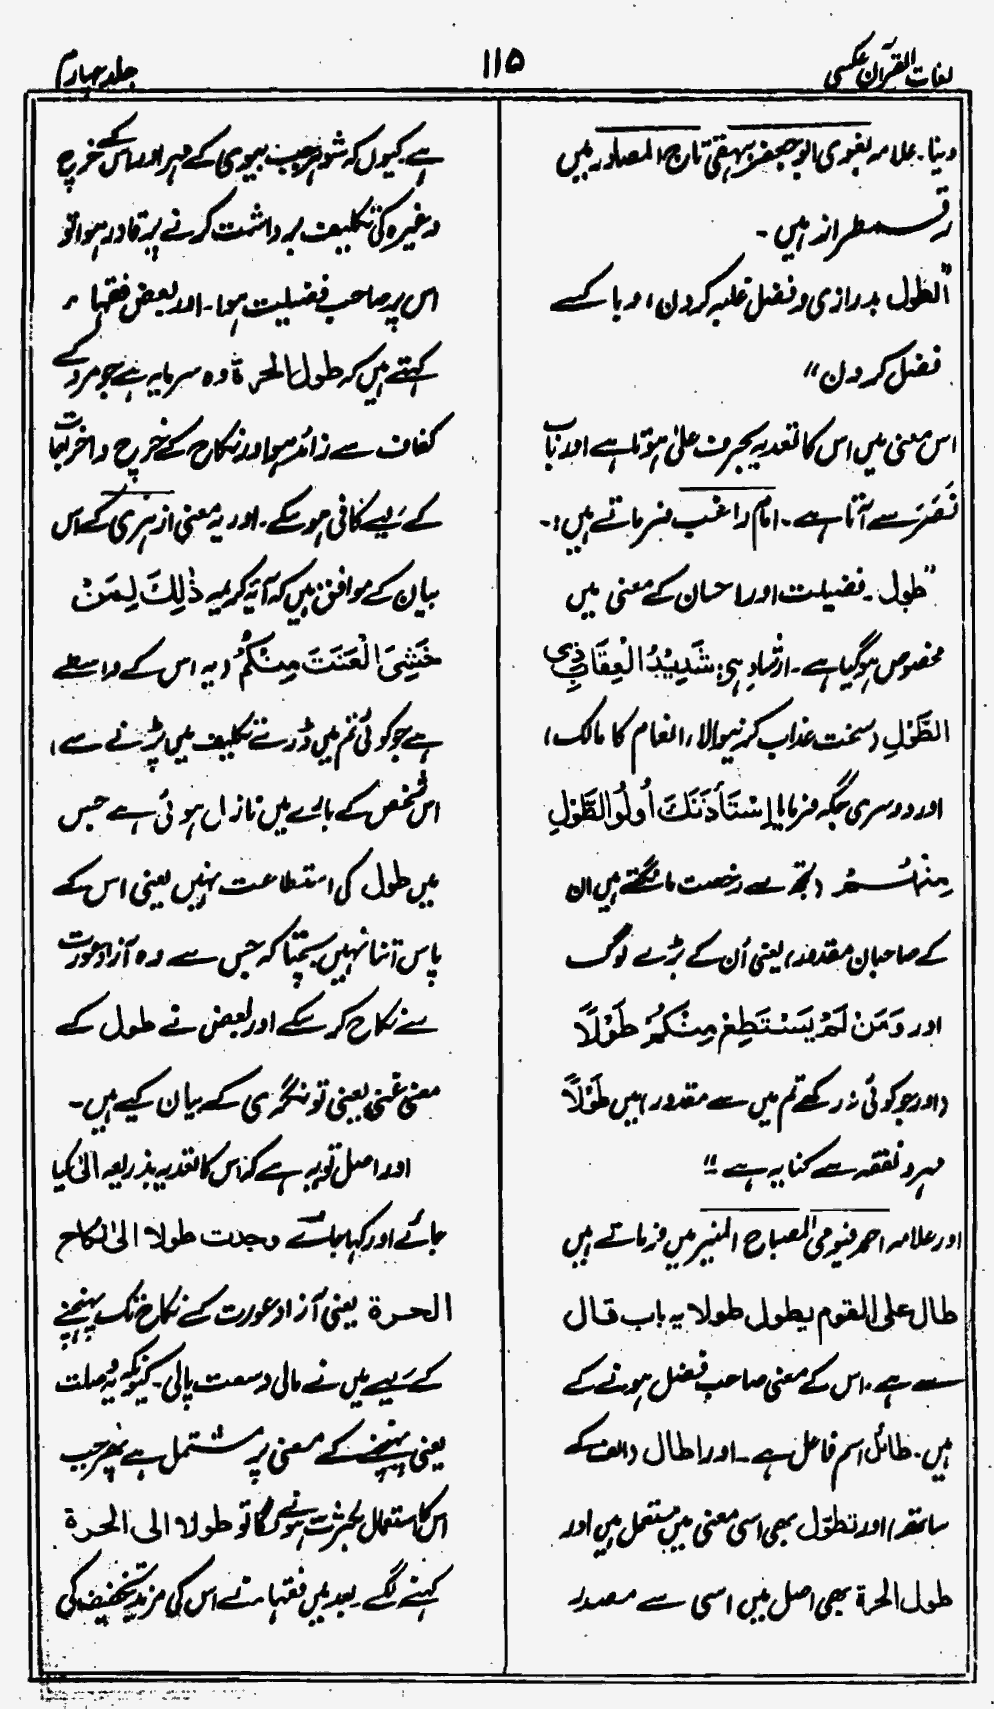 لغات القرآن عکسی
۱۱۵
جلد چہارم
دینا۔ علامہ لغوی ابو جعفر بیہقی تاج المصادر میں
رقمطراز ہیں۔
"الطول بدرازی و فضل غلبہ کردن، و با کسے
فضل کردن"
اس معنی میں اس کا تعدیہ بحرف علیٰ ہوتا ہے اور باب
نَصَرَ سے آتا ہے۔ امام راغب فرماتے ہیں:۔
"طول۔ فضیلت اور احسان کے معنی میں
مخصوص ہوگیا ہے۔ ارشاد ہی: شَدِیْدُ الْعِقَابِ ذِی
الطَّوْلِ (سخت عذاب کرنیوالا، انعام کا مالک)
اور دوسری جگہ فرمایا اِسْتَأْذَنَكَ اُولُوا الطَّوْلِ
مِنْهُمْ (تجھ سے رخصت مانگتے ہیں ان
کے صاحبان مقدور) یعنی اُن کے بڑے لوگ
اور وَمَنْ لَمْ يَسْتَطِعْ مِنْكُمْ طَوْلًا
(اور جو کوئی نہ رکھے تم میں سے مقدور) میں طَوْلًا
مہر و نفقہ سے کنایہ ہے"
اور علامہ احمد فیومی المصباح المنیر میں فرماتے ہیں
طال علی القوم یطول طولا یہ باب قال
سے ہے۔ اس کے معنی صاحب فضل ہونے کے
ہیں۔ طائل اسم فاعل ہے۔ اور اطال (الف کے
ساتھ) اور تطوّل بھی اسی معنی میں مستعمل ہیں اور
طول الحرۃ بھی اصل میں اسی سے مصدر
ہے کیوں کہ شوہر جب بیوی کے مہر اور اس کے خرچ
وغیرہ کی تکلیف برداشت کرنے پر قادر ہوا تو
اس پر صاحب فضیلت ہوا۔ اور بعض فقہاء
کہتے ہیں کہ طول الحرۃ وہ سرمایہ ہے جو مرد کے
کفاف سے زائد ہو اور نکاح کے خرچ و اخراجات
کے لیے کافی ہو سکے۔ اور یہ معنی ازہری کے اس
بیان کے موافق ہیں کہ آیہ کریمہ ذٰلِكَ لِمَنْ
خَشِیَ الْعَنَتَ مِنْكُمْ (یہ اس کے واسطے
ہے جو کوئی تم میں ڈرے تکلیف میں پڑنے سے)
اس شخص کے بارے میں نازل ہوئی ہے جس
میں طول کی استطاعت نہیں یعنی اس کے
پاس اتنا نہیں بچتا کہ جس سے وہ آزاد عورت
سے نکاح کر سکے اور بعض نے طول کے
معنی غنی یعنی تونگری کے بیان کیے ہیں۔
اور اصل تو یہ ہے کہ اس کا تعدیہ بذریعہ الیٰ کیا
جائے اور کہا جائے وجدت طولا الیٰ نکاح
الحرۃ یعنی آزاد عورت کے نکاح تک پہنچنے
کے لیے میں نے مالی وسعت پالی۔ کیونکہ یہ وصلت
یعنی پہنچنے کے معنی پر مشتمل ہے پھر جب
اس کا استعمال بکثرت ہونے لگا تو طولا الی الحرۃ
کہنے لگے۔ بعد میں فقہاء نے اس کی مزید تخفیف کی